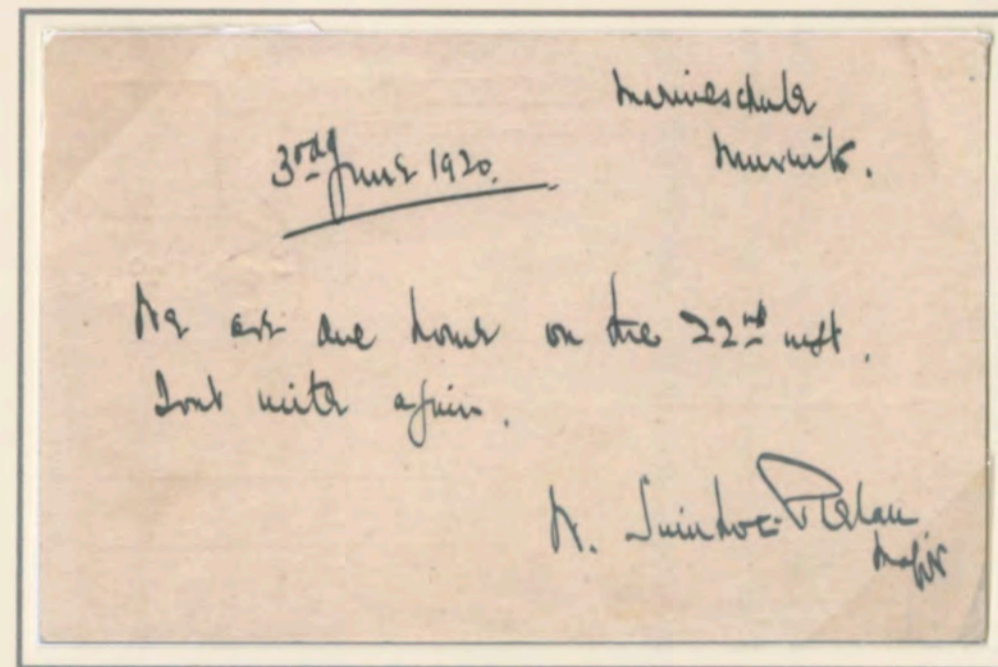 Marineschule
Mürwik.
3rd June 1920.
We are due home on the 22nd inst.
Dont write again.
W. Swinhoe-Phelan
Major